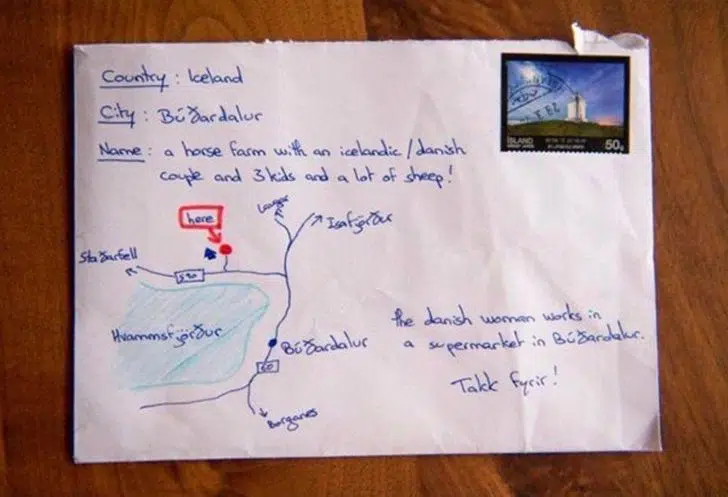 Country : Iceland
City : Búðardalur
Name : a horse farm with an icelandic / danish
couple and 3 kids and a lot of sheep!
here
Isafjørður
Staðarfell
590
Hvammsfjørður
Búðardalur
60
Borganes
the danish woman works in
a supermarket in Búðardalur.
Takk fyrir!
ÍSLAND
50g